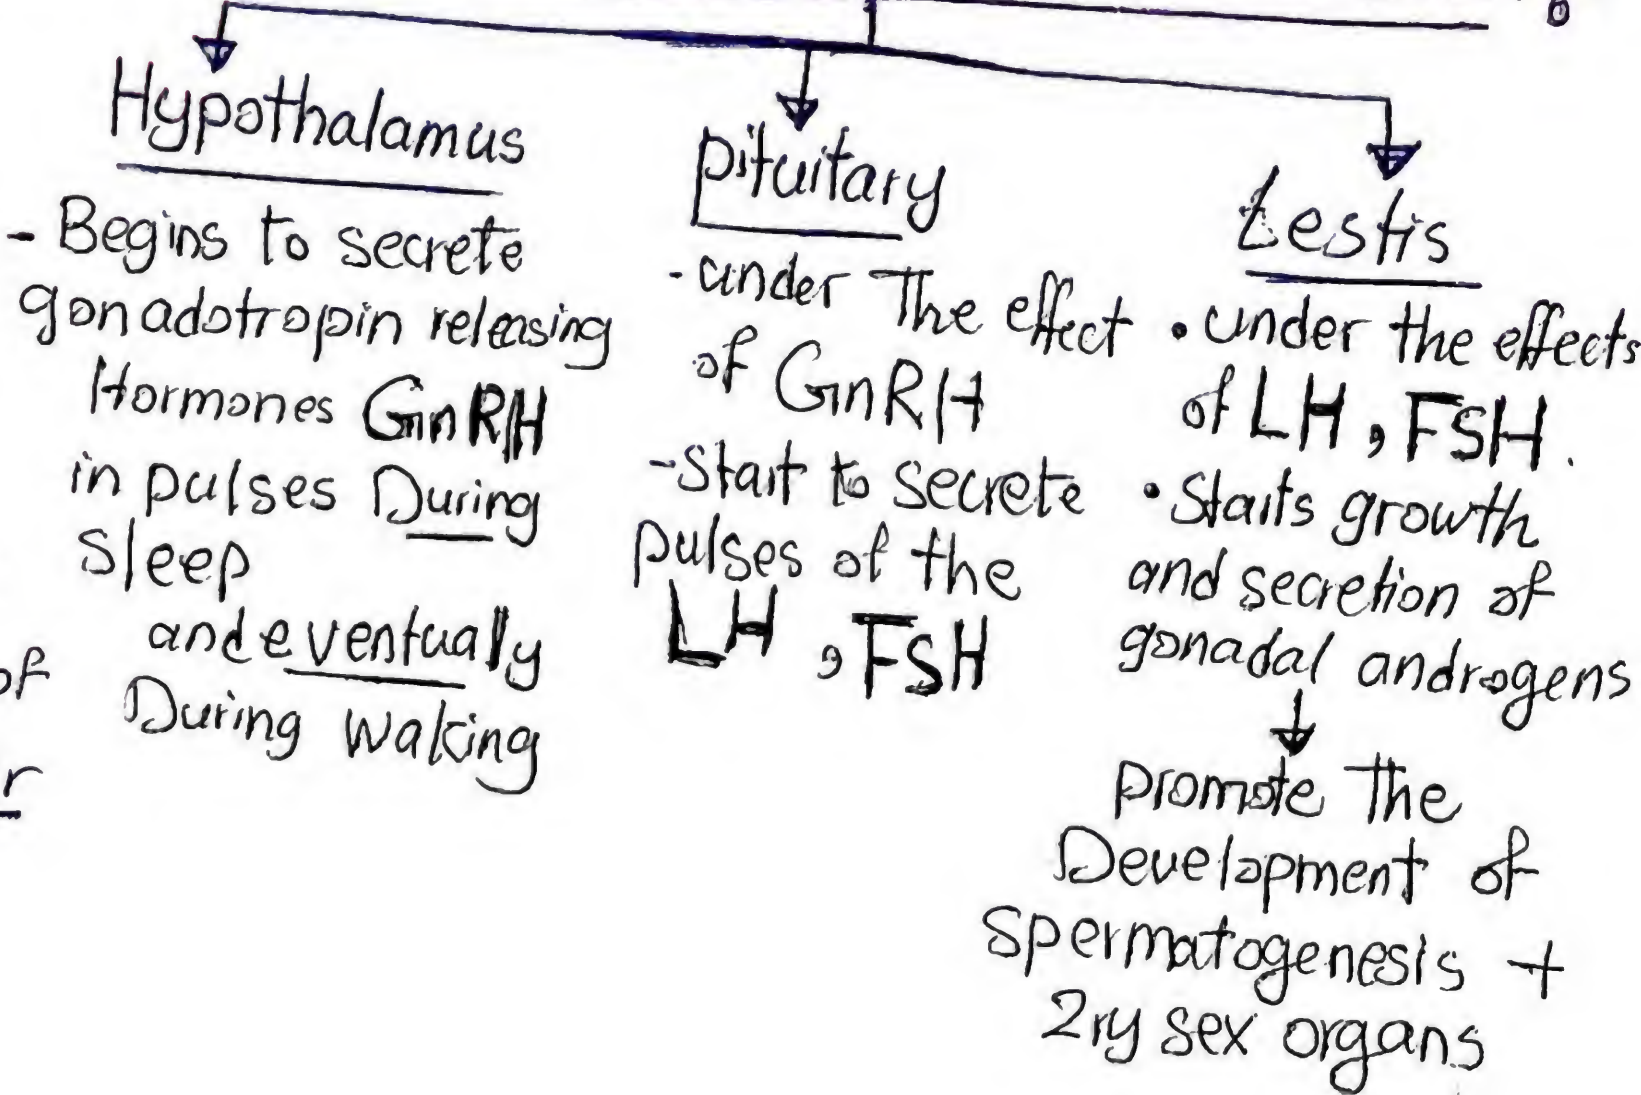 Hypothalamus
- Begins to secrete
gonadotropin releasing
Hormones GnRH
in pulses During
sleep
and eventually
During waking
of
r
pituitary
- under The effect
of GnRH
- Start to secrete
pulses of the
LH , FSH
testis
• under the effects
of LH , FSH.
• Starts growth
and secretion of
gonadal androgens
promote The
Development of
spermatogenesis +
2ry sex organs